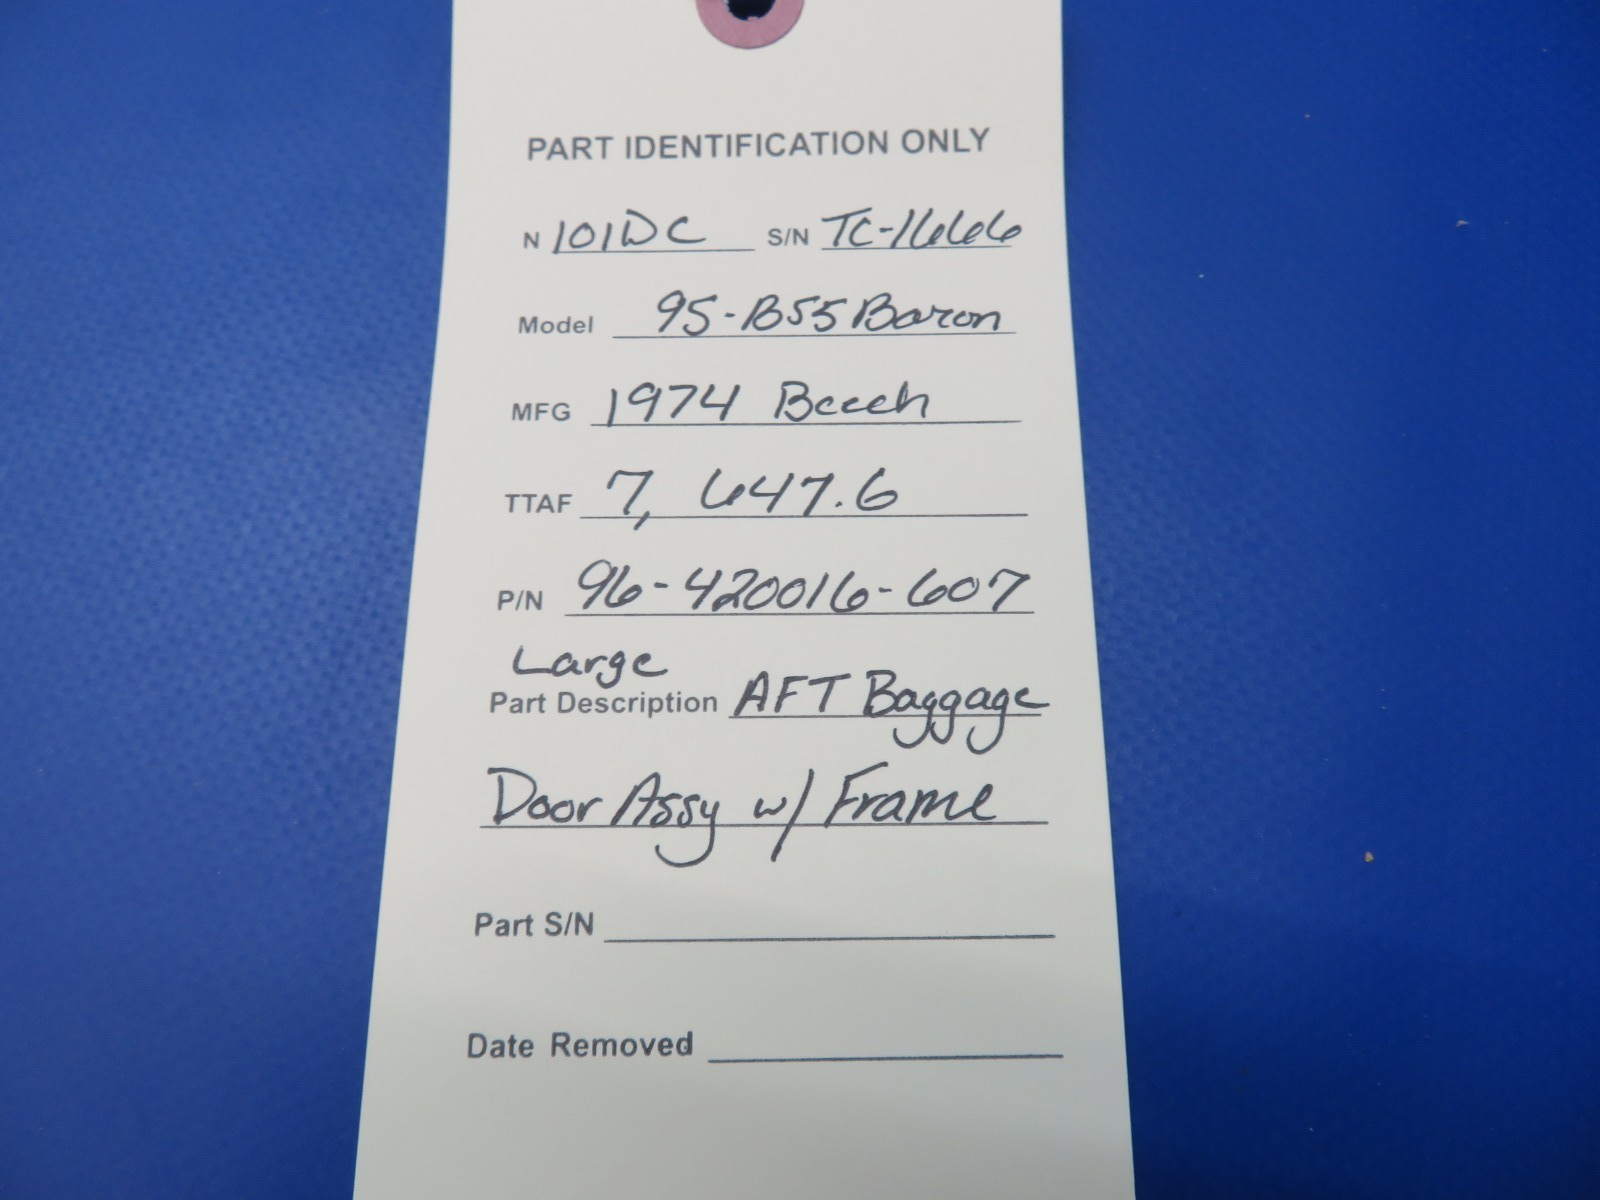 PART IDENTIFICATION ONLY
N 101DC S/N TC-1666
Model 95-B55 Baron
MFG 1974 Beech
TTAF 7,647.6
P/N 96-420016-607
Large
Part Description AFT Baggage
Door Assy w/ Frame
Part S/N
Date Removed